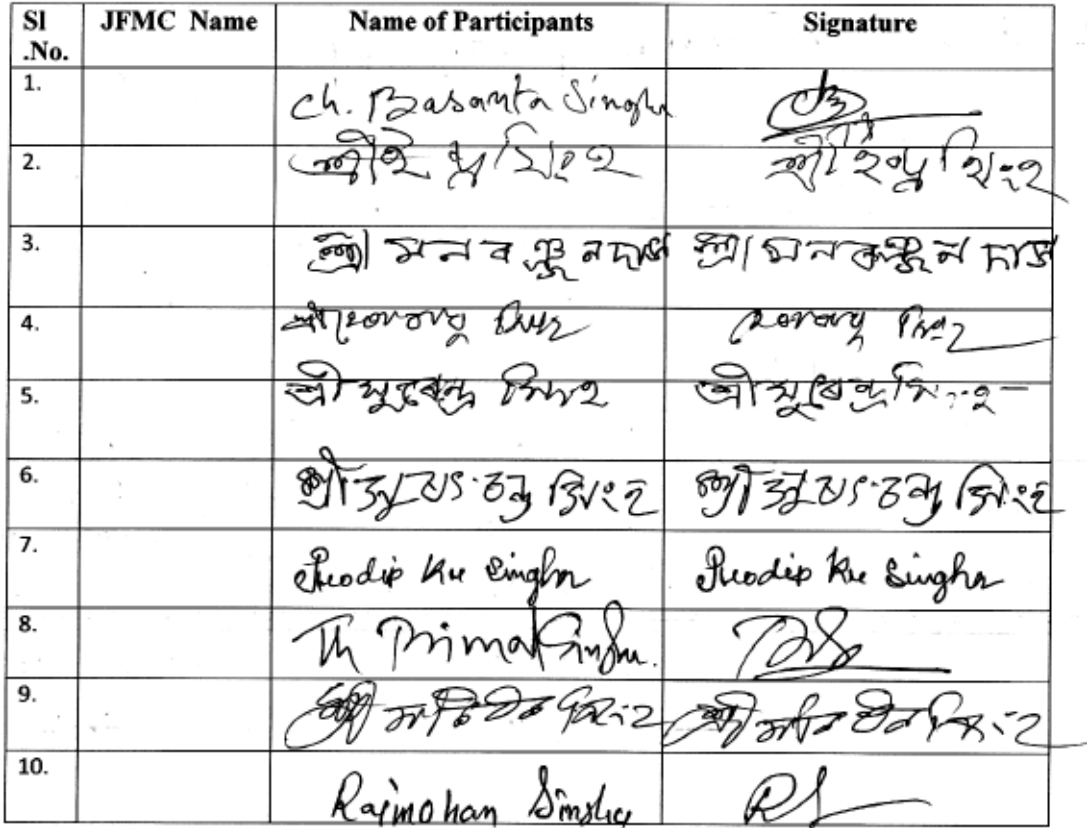 Sl .No. JFMC Name Name of Participants Signature
1. Ch. Basanta Singha
2. শ্রী সিংহ শ্রী সিংহ
3. শ্রী মনরঞ্জন দাস শ্রী মনরঞ্জন দাস
4. শ্রী সিংহ সিংহ
5. শ্রী সুরেন্দ্র সিংহ শ্রী সুরেন্দ্র সিংহ
6. শ্রী চন্দ্র সিংহ শ্রী চন্দ্র সিংহ
7. Prodip Ku Singha Prodip Ku Singha
8. Th Bimal Singha. BS
9. শ্রী সিংহ শ্রী সিংহ
10. Rajmohan Singha RS